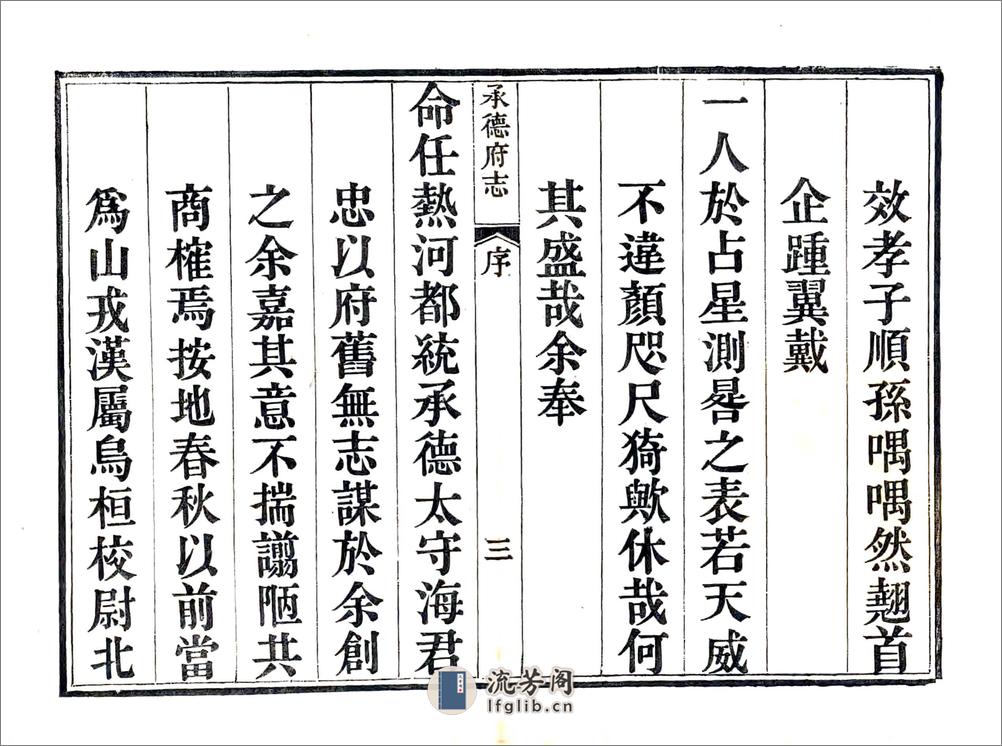 效孝子順孫喁喁然翹首
企踵翼戴
一人於占星測晷之表若天威
不違顏咫尺猗歟休哉何
其盛哉余奉
承德府志
序
三
命任熱河都統承德太守海君
忠以府舊無志謀於余創
之余嘉其意不揣譾陋共
商榷焉按地春秋以前當
為山戎漢屬烏桓校尉北
流芳阁
lfglib.cn